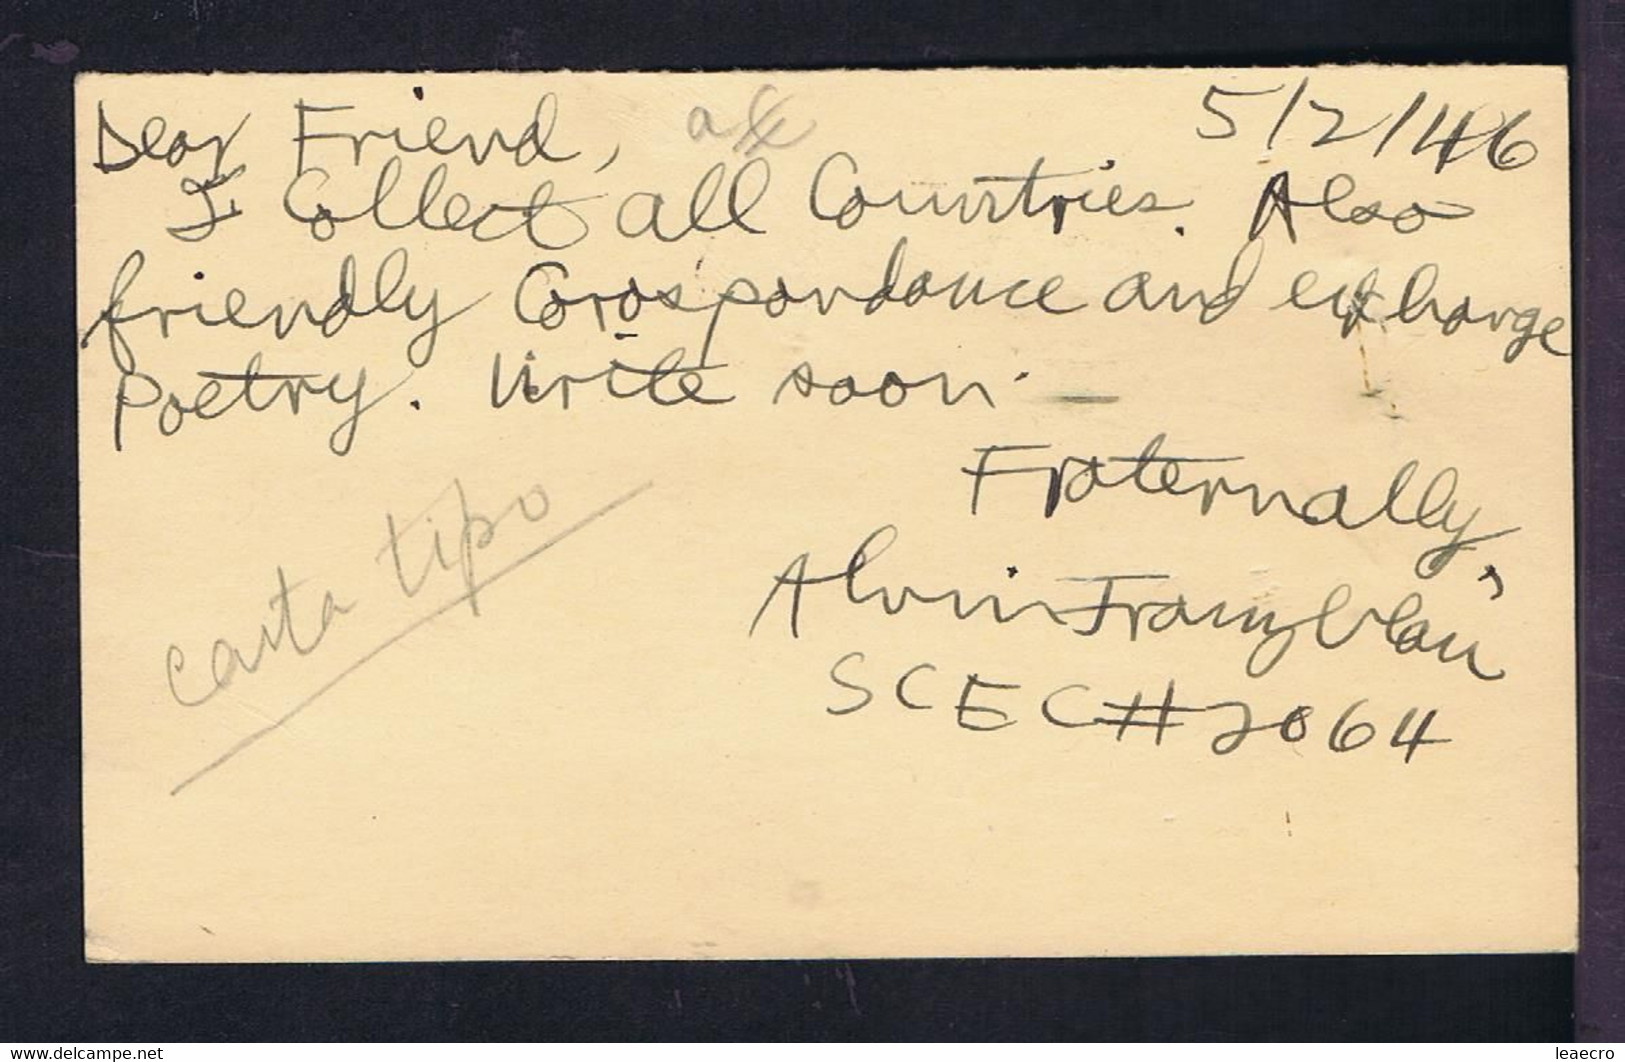 5/2/46
Dear Friend,
I Collect all Countries. Also
friendly Corospondance and exchange
Poetry. Write soon.
Fraternally,
Alvin Franzblau
SCEC#2064
carta tipo
delcampe.net
leaecro